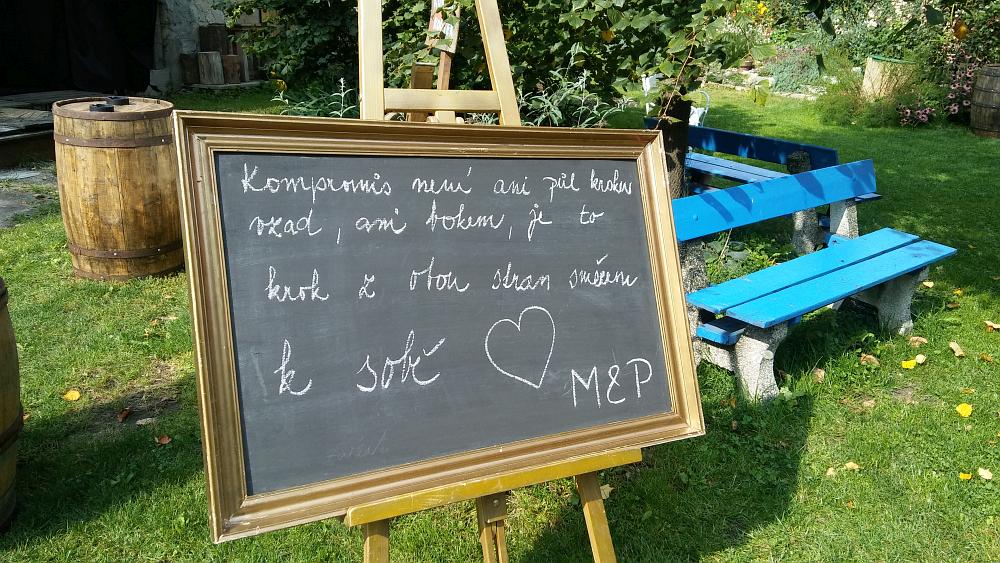 Kompromis není ani půl kroku
vzad, ani bokem, je to
krok z obou stran směrem
k sobě
M&P